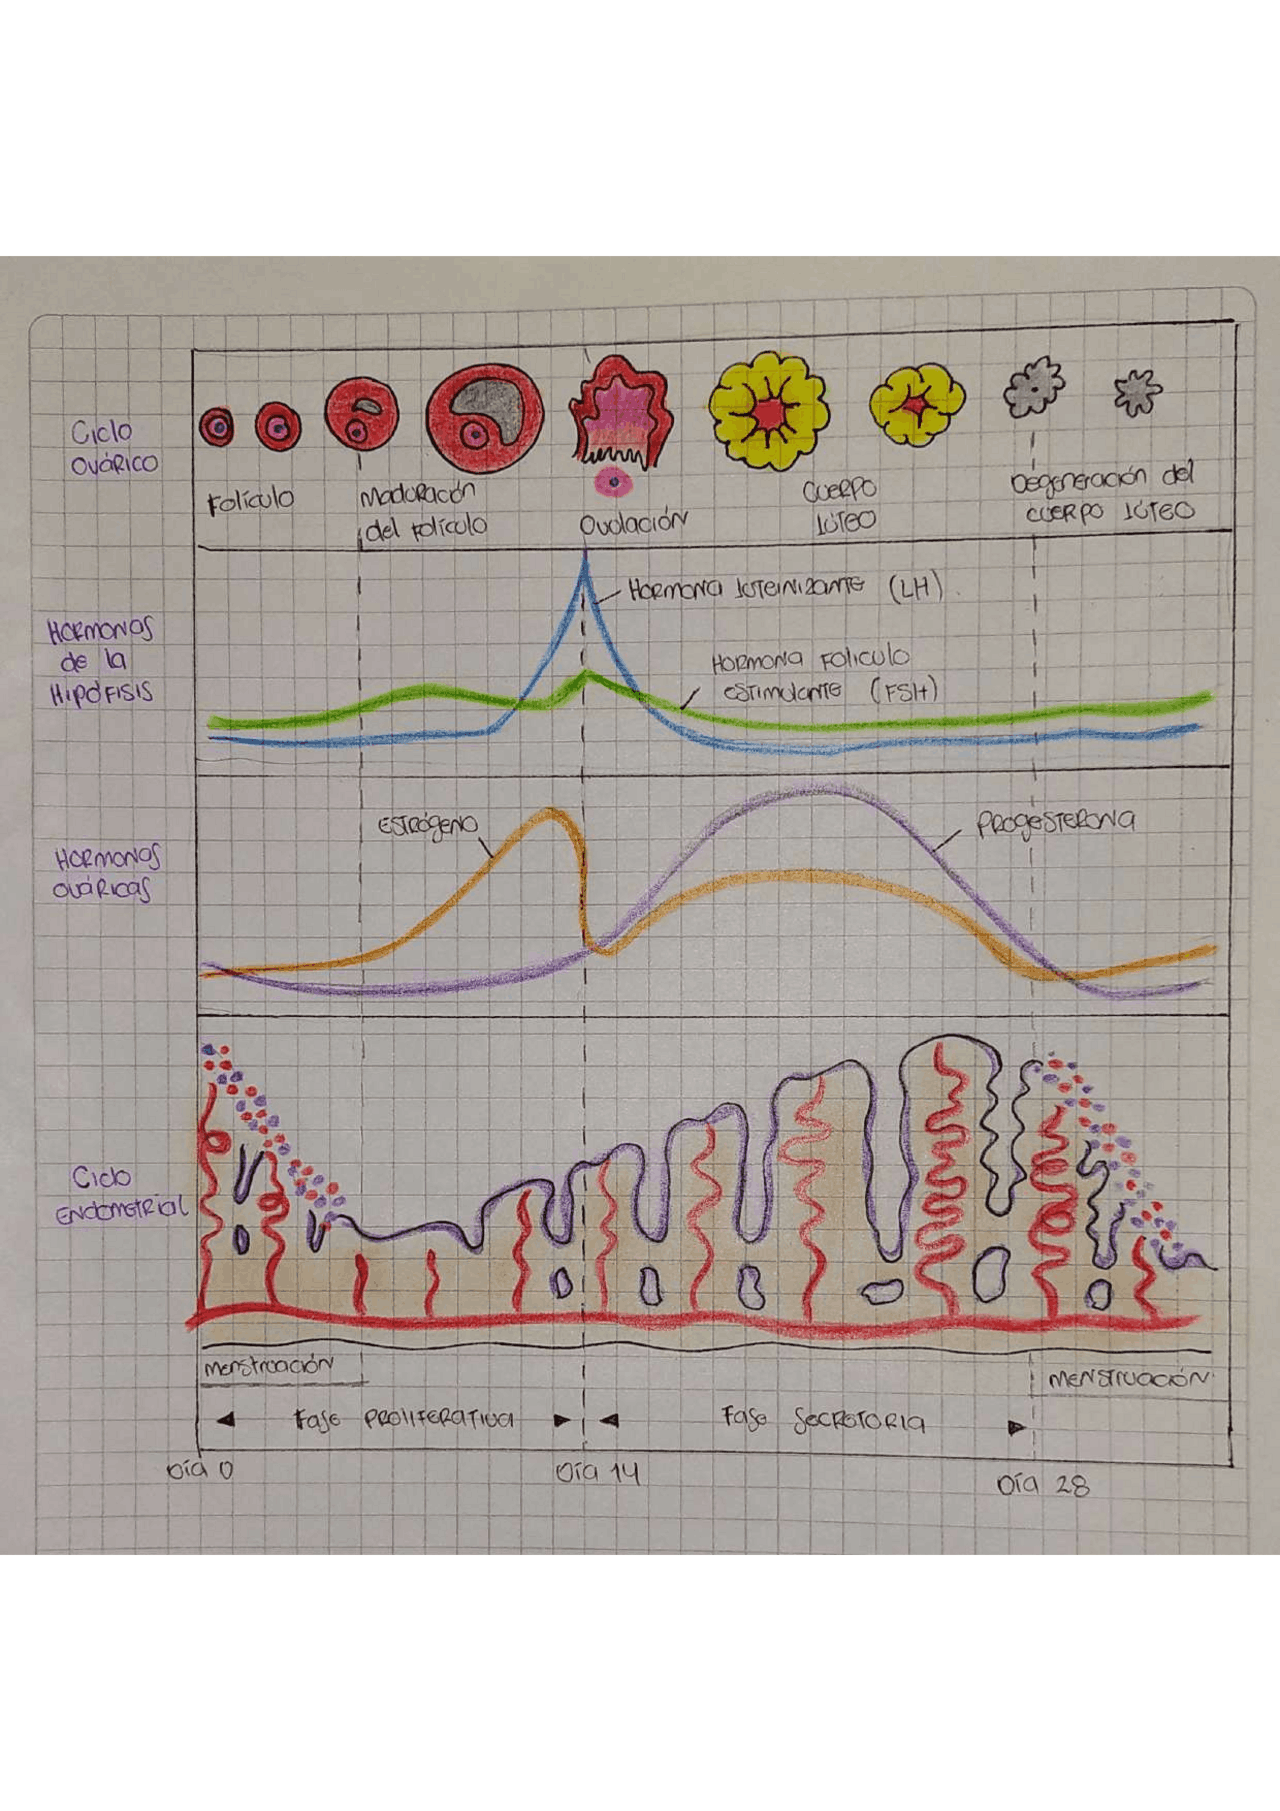 Ciclo
Ovárico
Folículo
Maduración
del Folículo
Ovulación
Cuerpo
Lúteo
Degeneración del
Cuerpo Lúteo
Hormonas
de la
Hipófisis
Hormona Luteinizante (LH)
Hormona Foliculo
Estimulante (FSH)
Hormonas
Ováricas
Estrógeno
Progesterona
Ciclo
Endometrial
Menstruación
Menstruación
Fase Proliferativa
Fase Secretoria
Día 0
Día 14
Día 28